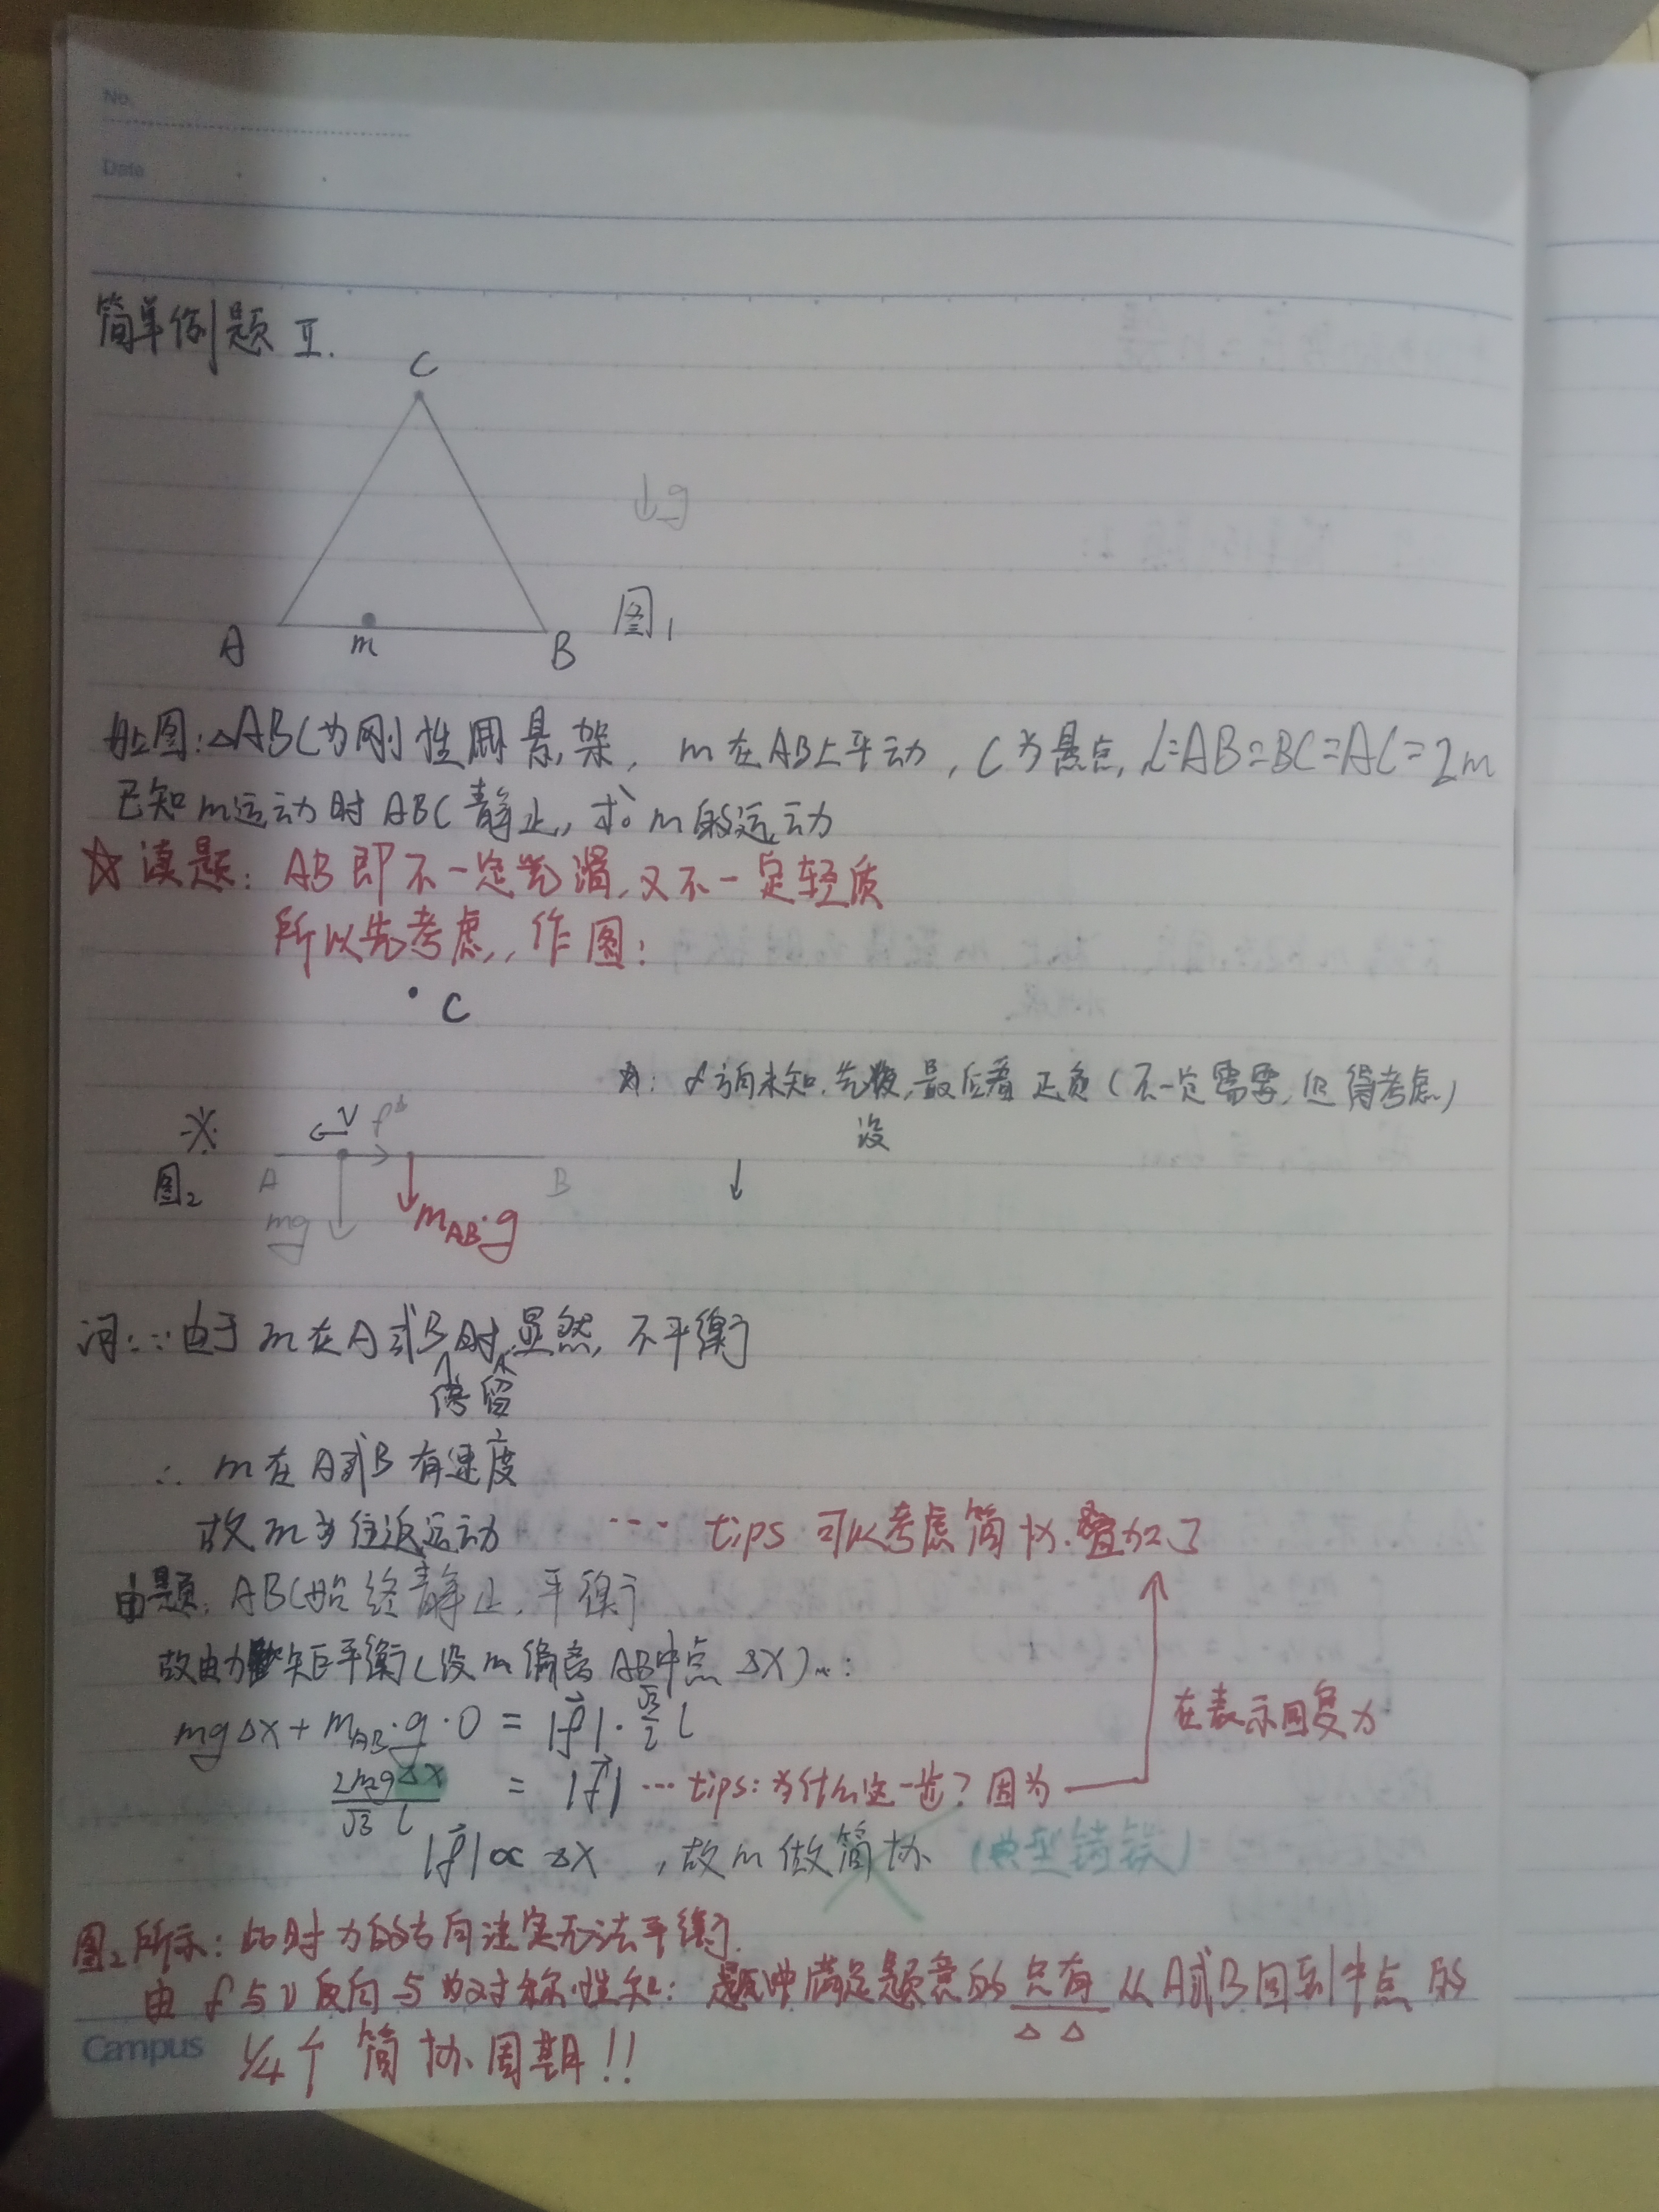 No.
Date
简单例题 II.
C
↓g
A
m
B
图1
如图:△ABC为刚性悬架, m在AB上平动, C为悬点, L=AB=BC=AC=2m
已知m运动时ABC静止, 求m的运动
☆读题: AB即不一定光滑, 又不一定轻质
所以先考虑, 作图:
C
☆: f方向未知, 先设, 最后看正负(不一定需要, 但得考虑)
※
V
f
A
B
图2
mg
mAB·g
∵由于m在A或B时显然, 不平衡
停留
∴ m在A或B有速度
故m为往返运动 ··· tips 可以考虑简协.叠加了
由题, ABC始终静止, 平衡
故由力矩平衡(设m偏离AB中点 Δx):
mgΔx + mAB·g·0 = |f|·√3/2 L
在表示回复力
2mgΔx/√3 L = |f| ··· tips: 为什么这一步? 因为
|f| ∝ Δx, 故m做简协 (典型错误)
图2所示: 此时力的方向注定无法平衡.
由 f与v反向与对称性知: 满足题意的只有从A或B回到中点的
Campus
1/4个简协周期!!